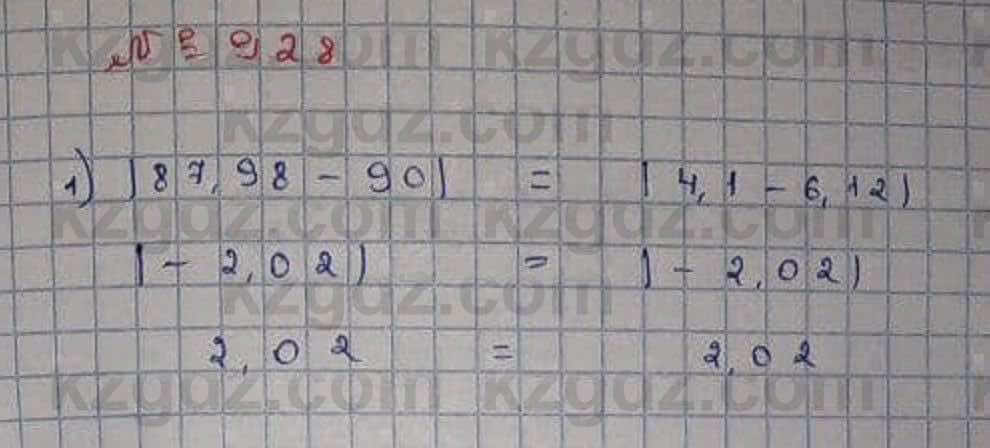 № 928
1) |87,98 - 90| = |4,1 - 6,12|
|- 2,02| = |- 2,02|
2,02 = 2,02
kzgdz.com kzgdz.com kzgdz.com
kzgdz.com
kzgdz.com kzgdz.com kzgdz.com
kzgdz.com
kzgdz.com kzgdz.com kzgdz.com